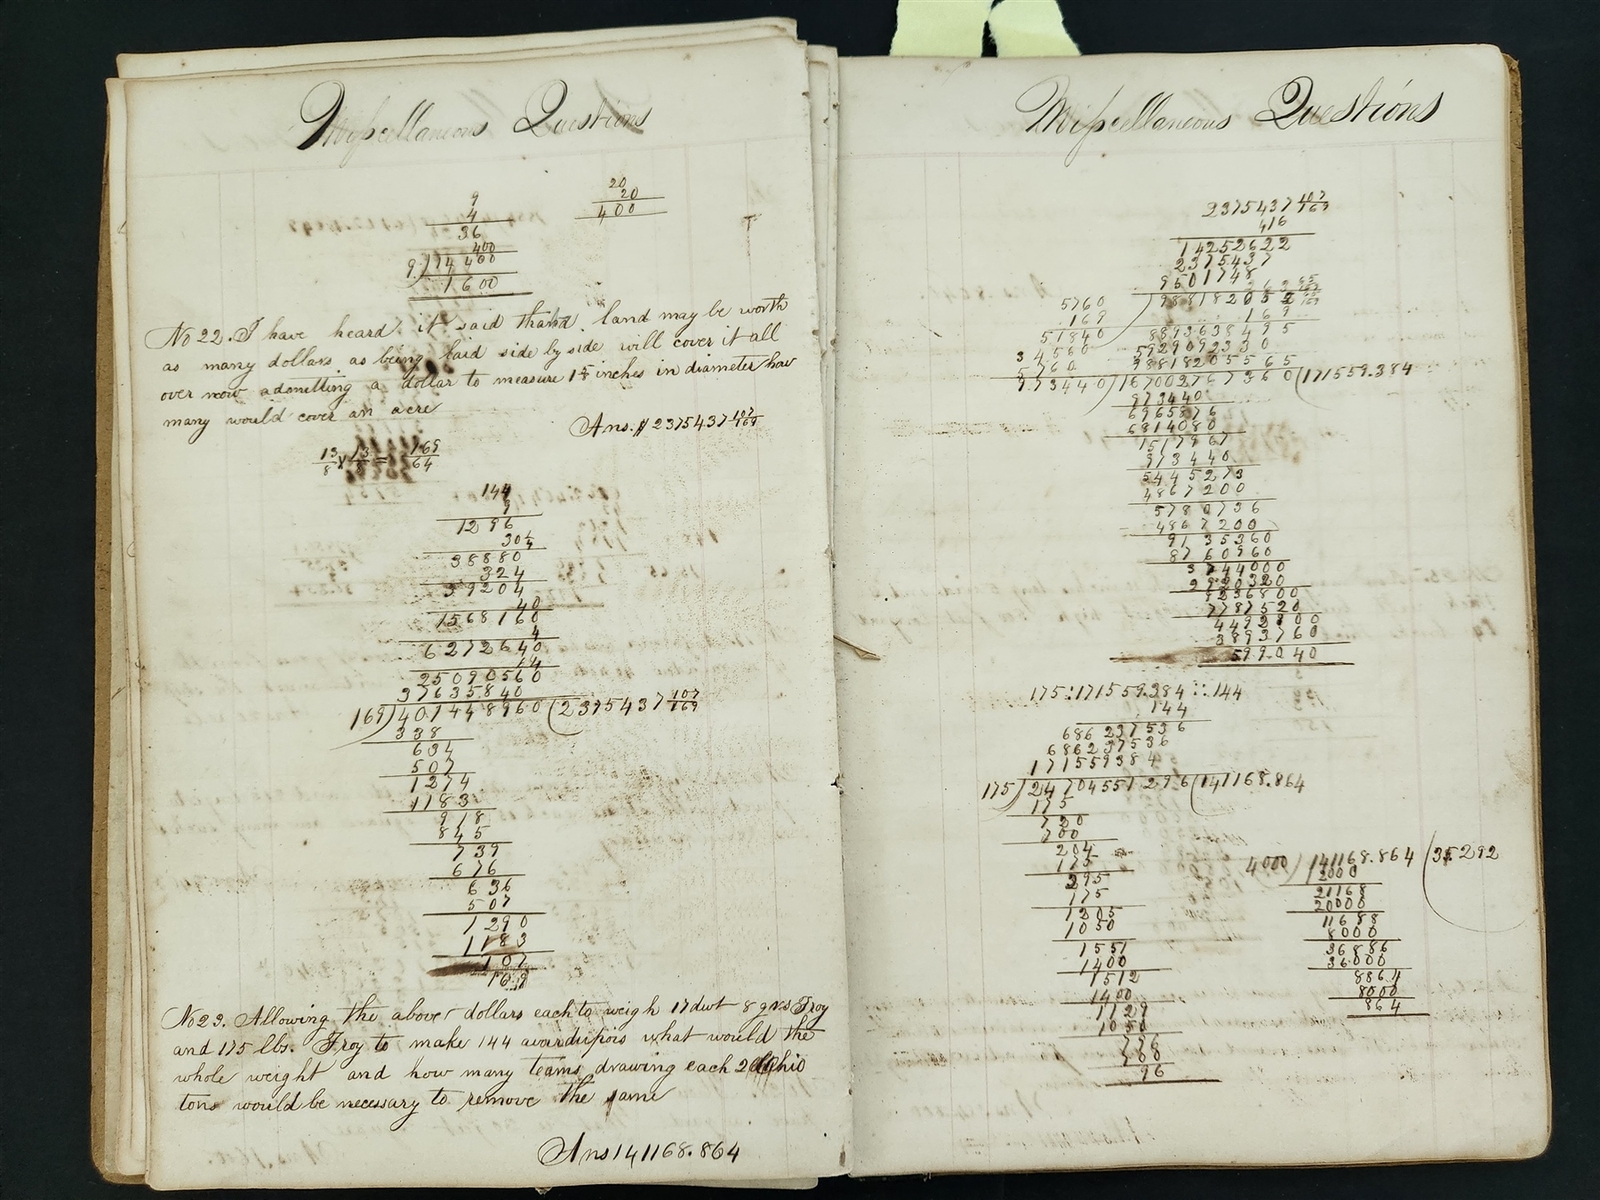 Miscellaneous Questions
9
4
36
400
9)14400
1600
20
20
400
No 22. I have heard it said that land may be worth
as many dollars as being laid side by side will cover it all
over now admitting a dollar to measure 1 5/8 inches in diameter how
many would cover an acre
Ans. $ 2375437 107/169
13/8 × 13/8 = 169/64
144
9
1296
30 1/4
38880
324
39204
40
1568160
4
6272640
64
25090560
37635840
169)401448960(2375437 107/169
338
634
507
1274
1183
918
845
739
676
636
507
1290
1183
107
169
No 23. Allowing the above dollars each to weigh 17 dwt 8 grs Troy
and 175 lbs. Troy to make 144 avoirdupois what would the
whole weight and how many teams drawing each 2 Ohio
tons would be necessary to remove the same
Ans 141168.864
Miscellaneous Questions
2375437 107/169
416
14252622
2375437
9501748
5760
169
51840
34560
5760
973440)167002767360(171559.384
973440
6965876
6814080
1517967
973440
5445273
4867200
5780736
4867200
9135360
8760960
3744000
2920320
8236800
7787520
4492800
3893760
599040
175:171559.384::144
144
686237536
686237536
171559384
175)24704551296(141168.864
175
720
700
204
175
295
175
1205
1050
1551
1400
1512
1400
1129
1050
96
4000)141168.864(35.292
21168
20000
11688
8000
36886
36000
8864
8000
864